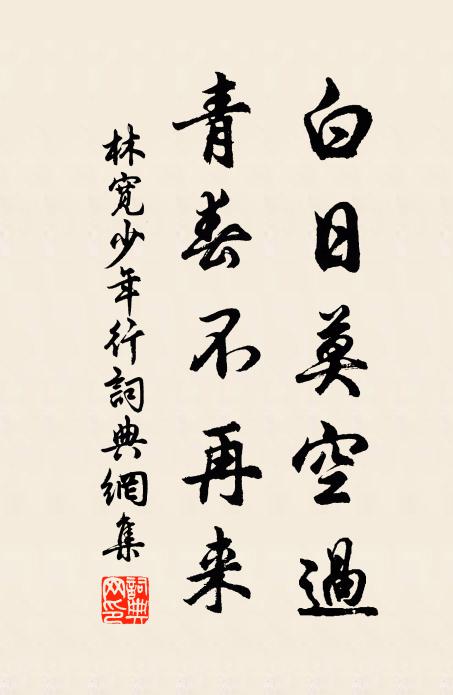 白日莫空過
青春不再来
林寛少年行詞典網集
詞典網印